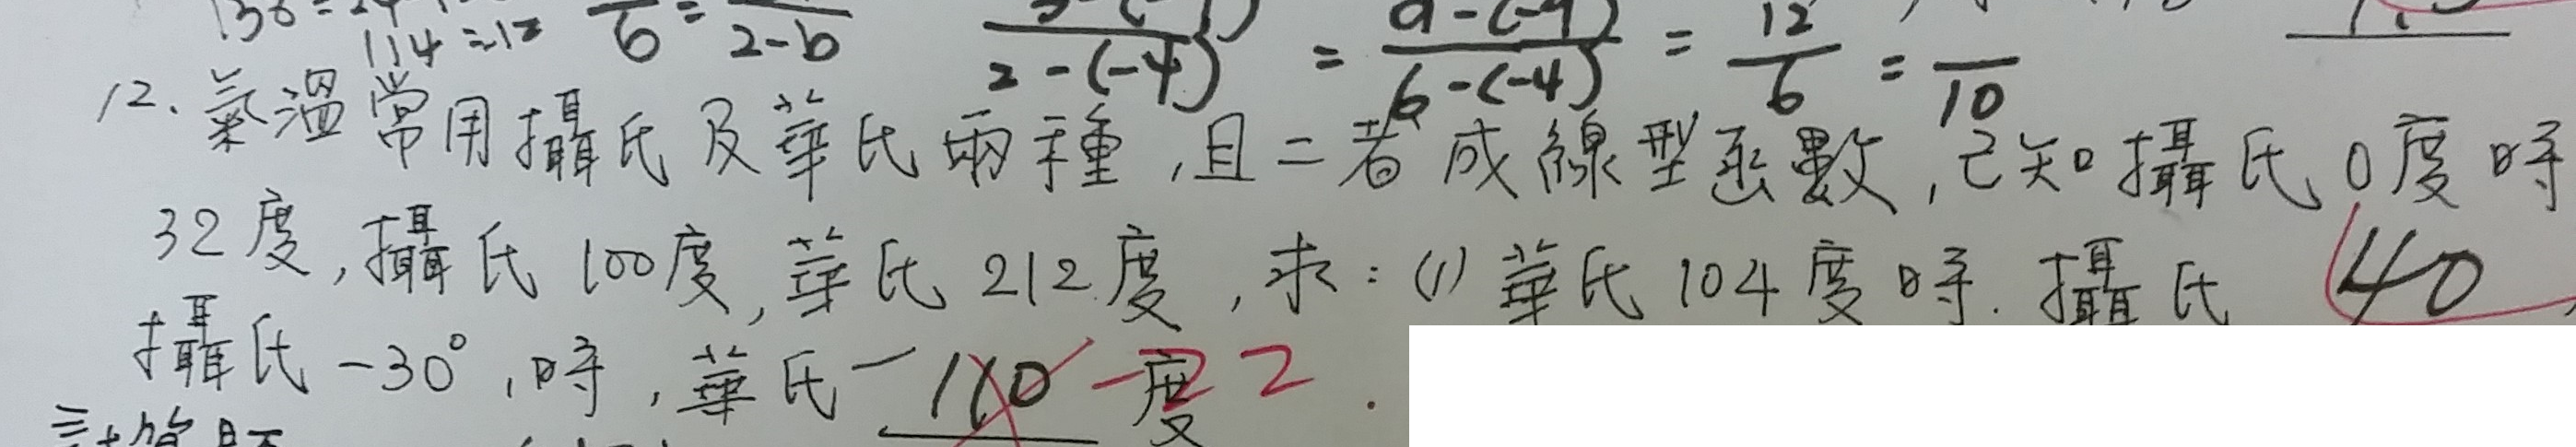 114 = 12
6 = 2-b
2-(-4) = 9-(-9) / 6-(-4) = 12/6 = /10
12、氣溫常用攝氏及華氏兩種,且二者成線型函數,已知攝氏0度時
32度,攝氏100度,華氏212度,求:(1)華氏104度時.攝氏 40
攝氏-30°,時,華氏-110 度 -22.